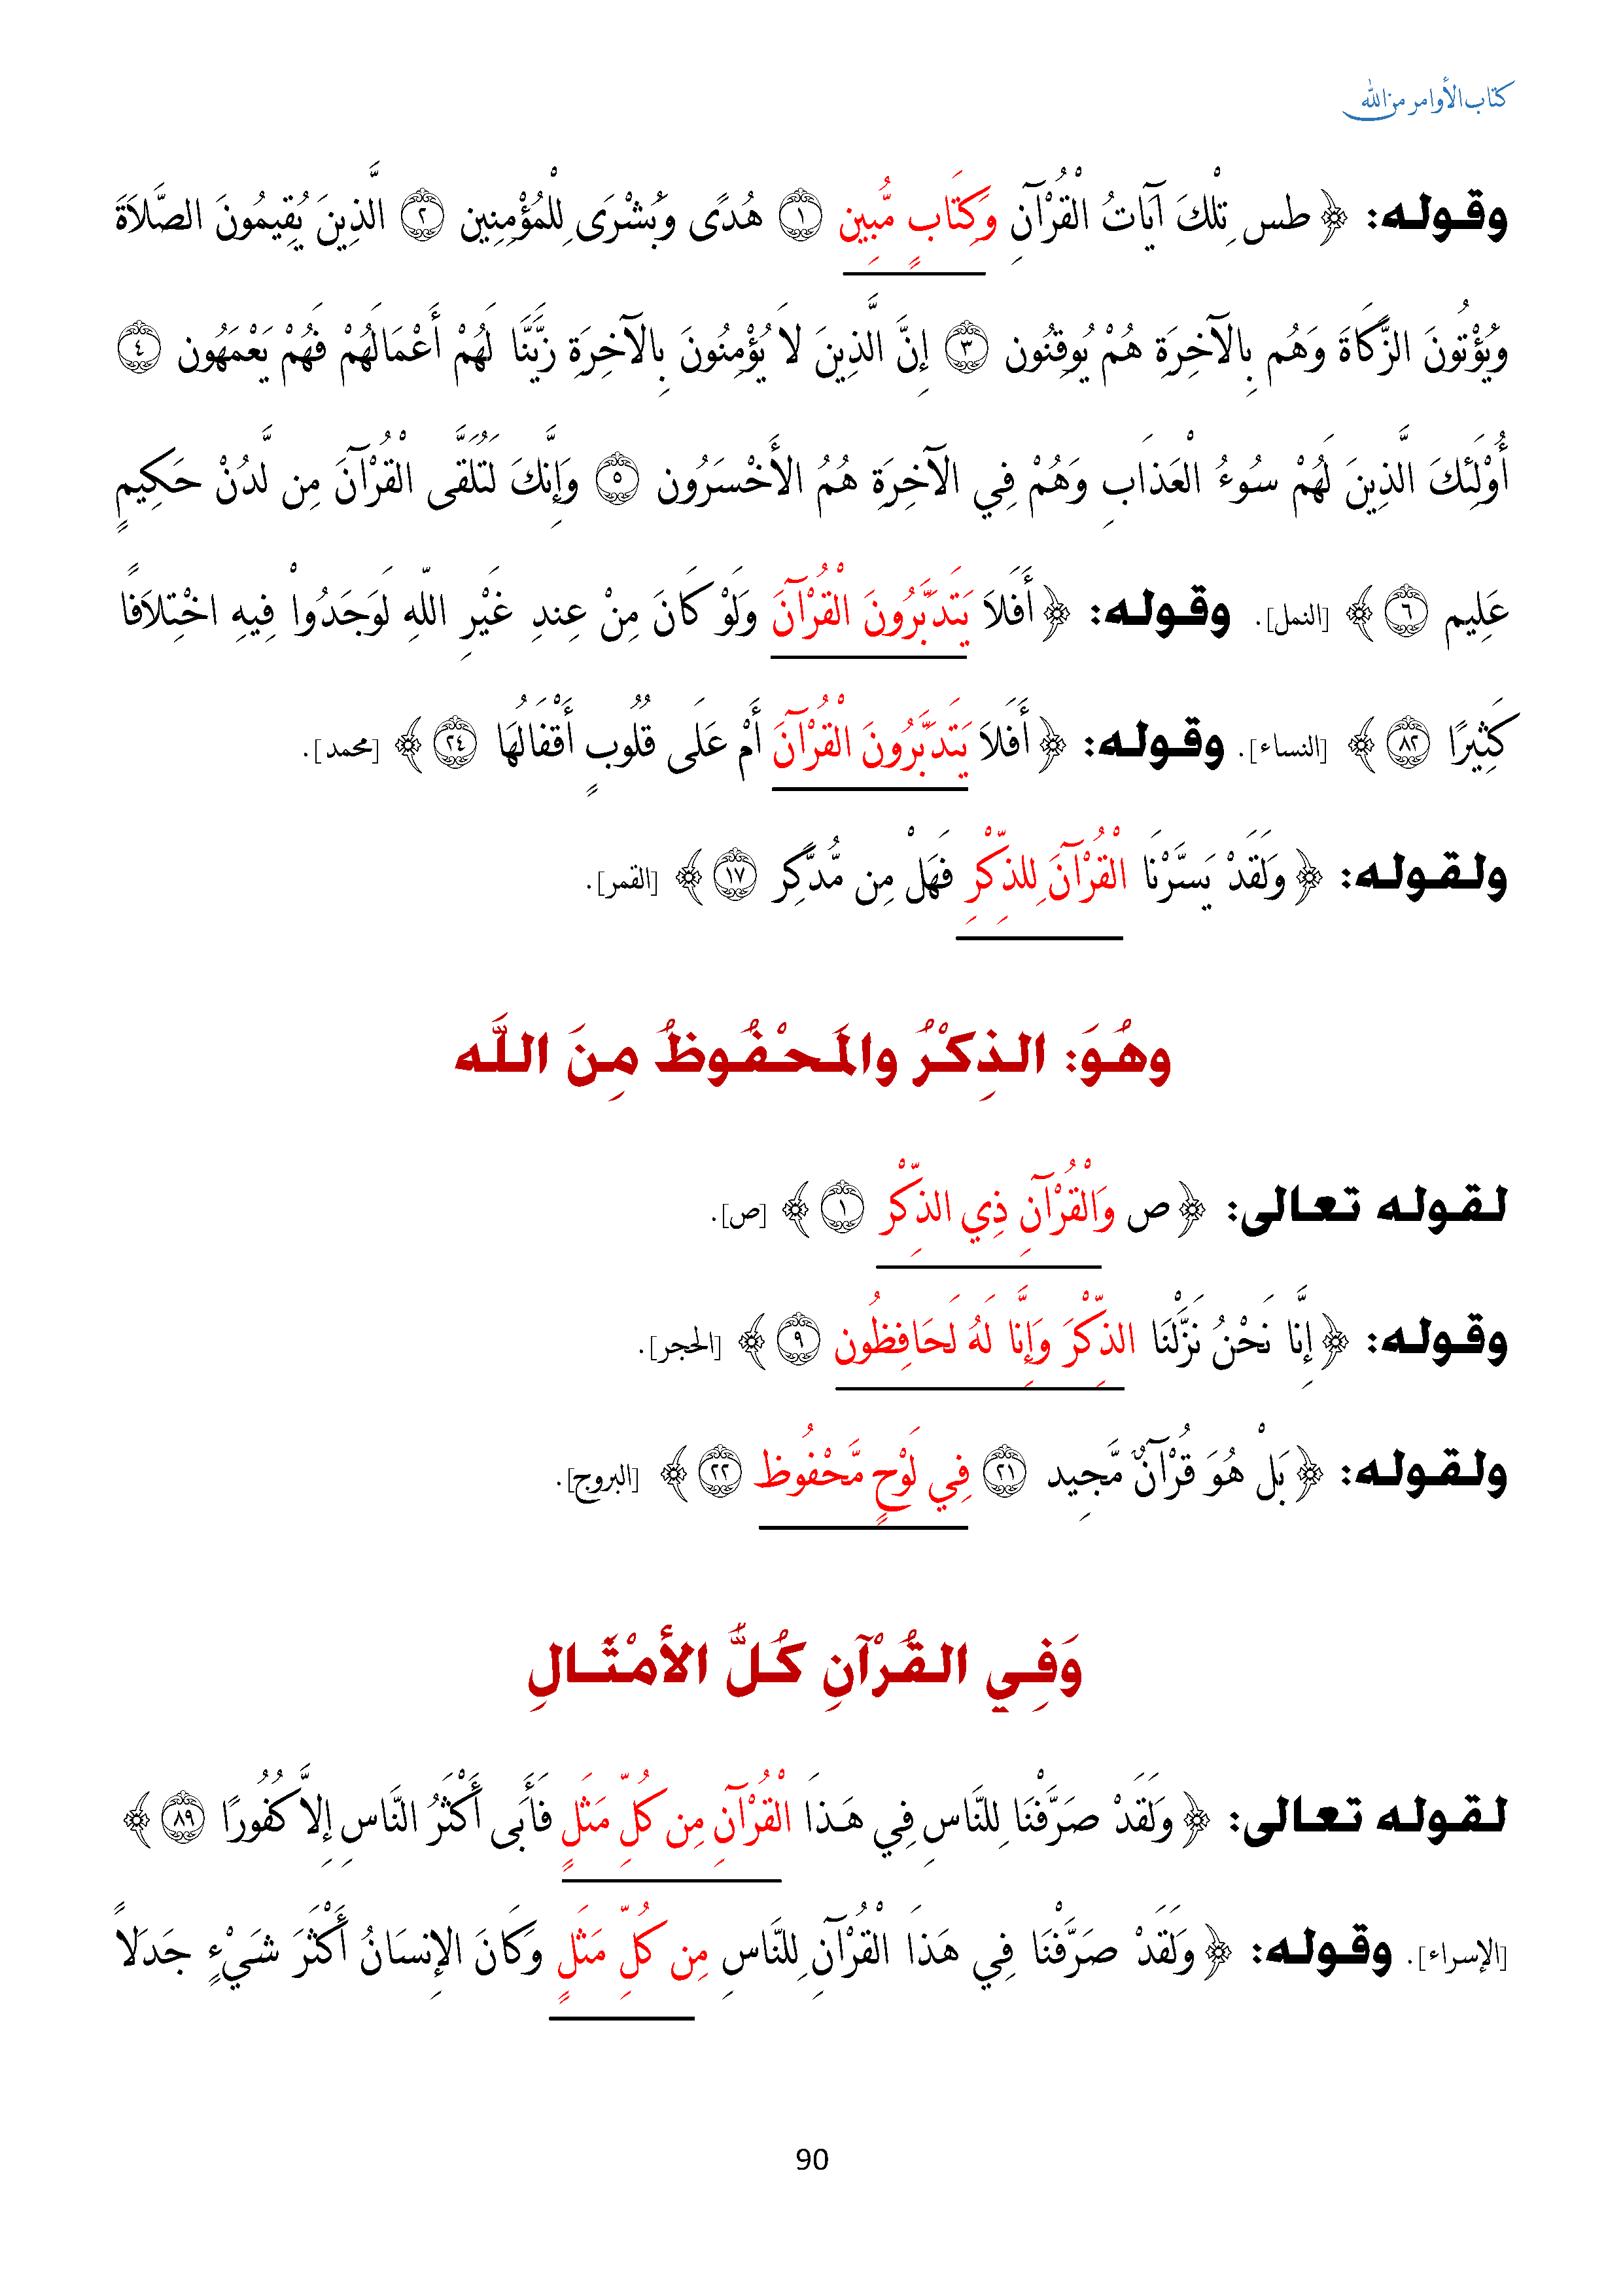 كتاب الأوامر من الله
وقوله: ﴿ طس تِلْكَ آيَاتُ الْقُرْآنِ وَكِتَابٍ مُّبِينٍ ١ هُدًى وَبُشْرَى لِلْمُؤْمِنِين ٢ الَّذِينَ يُقِيمُونَ الصَّلاَةَ
وَيُؤْتُونَ الزَّكَاةَ وَهُم بِالآخِرَةِ هُمْ يُوقِنُون ٣ إِنَّ الَّذِينَ لاَ يُؤْمِنُونَ بِالآخِرَةِ زَيَّنَّا لَهُمْ أَعْمَالَهُمْ فَهُمْ يَعْمَهُون ٤
أُوْلَئِكَ الَّذِينَ لَهُمْ سُوءُ الْعَذَابِ وَهُمْ فِي الآخِرَةِ هُمُ الأَخْسَرُون ٥ وَإِنَّكَ لَتُلَقَّى الْقُرْآنَ مِن لَّدُنْ حَكِيمٍ
عَلِيم ٦ ﴾ [النمل]. وقوله: ﴿ أَفَلاَ يَتَدَبَّرُونَ الْقُرْآنَ وَلَوْ كَانَ مِنْ عِندِ غَيْرِ اللّهِ لَوَجَدُواْ فِيهِ اخْتِلاَفًا
كَثِيرًا ٨٢ ﴾ [النساء]. وقوله: ﴿ أَفَلاَ يَتَدَبَّرُونَ الْقُرْآنَ أَمْ عَلَى قُلُوبٍ أَقْفَالُهَا ٢٤ ﴾ [محمد].
ولقوله: ﴿ وَلَقَدْ يَسَّرْنَا الْقُرْآنَ لِلذِّكْرِ فَهَلْ مِن مُّدَّكِر ١٧ ﴾ [القمر].
وهُوَ: الذِكْرُ والمَحْفُوظُ مِنَ اللَّه
لقوله تعالى: ﴿ ص وَالْقُرْآنِ ذِي الذِّكْرِ ١ ﴾ [ص].
وقوله: ﴿ إِنَّا نَحْنُ نَزَّلْنَا الذِّكْرَ وَإِنَّا لَهُ لَحَافِظُون ٩ ﴾ [الحجر].
ولقوله: ﴿ بَلْ هُوَ قُرْآنٌ مَّجِيد ٢١ فِي لَوْحٍ مَّحْفُوظ ٢٢ ﴾ [البروج].
وَفِي القُرْآنِ كُلَّ الأمْثَالِ
لقوله تعالى: ﴿ وَلَقَدْ صَرَّفْنَا لِلنَّاسِ فِي هَـذَا الْقُرْآنِ مِن كُلِّ مَثَلٍ فَأَبَى أَكْثَرُ النَّاسِ إِلاَّ كُفُورًا ٨٩ ﴾
[الإسراء]. وقوله: ﴿ وَلَقَدْ صَرَّفْنَا فِي هَذَا الْقُرْآنِ لِلنَّاسِ مِن كُلِّ مَثَلٍ وَكَانَ الإِنسَانُ أَكْثَرَ شَيْءٍ جَدَلاً
90